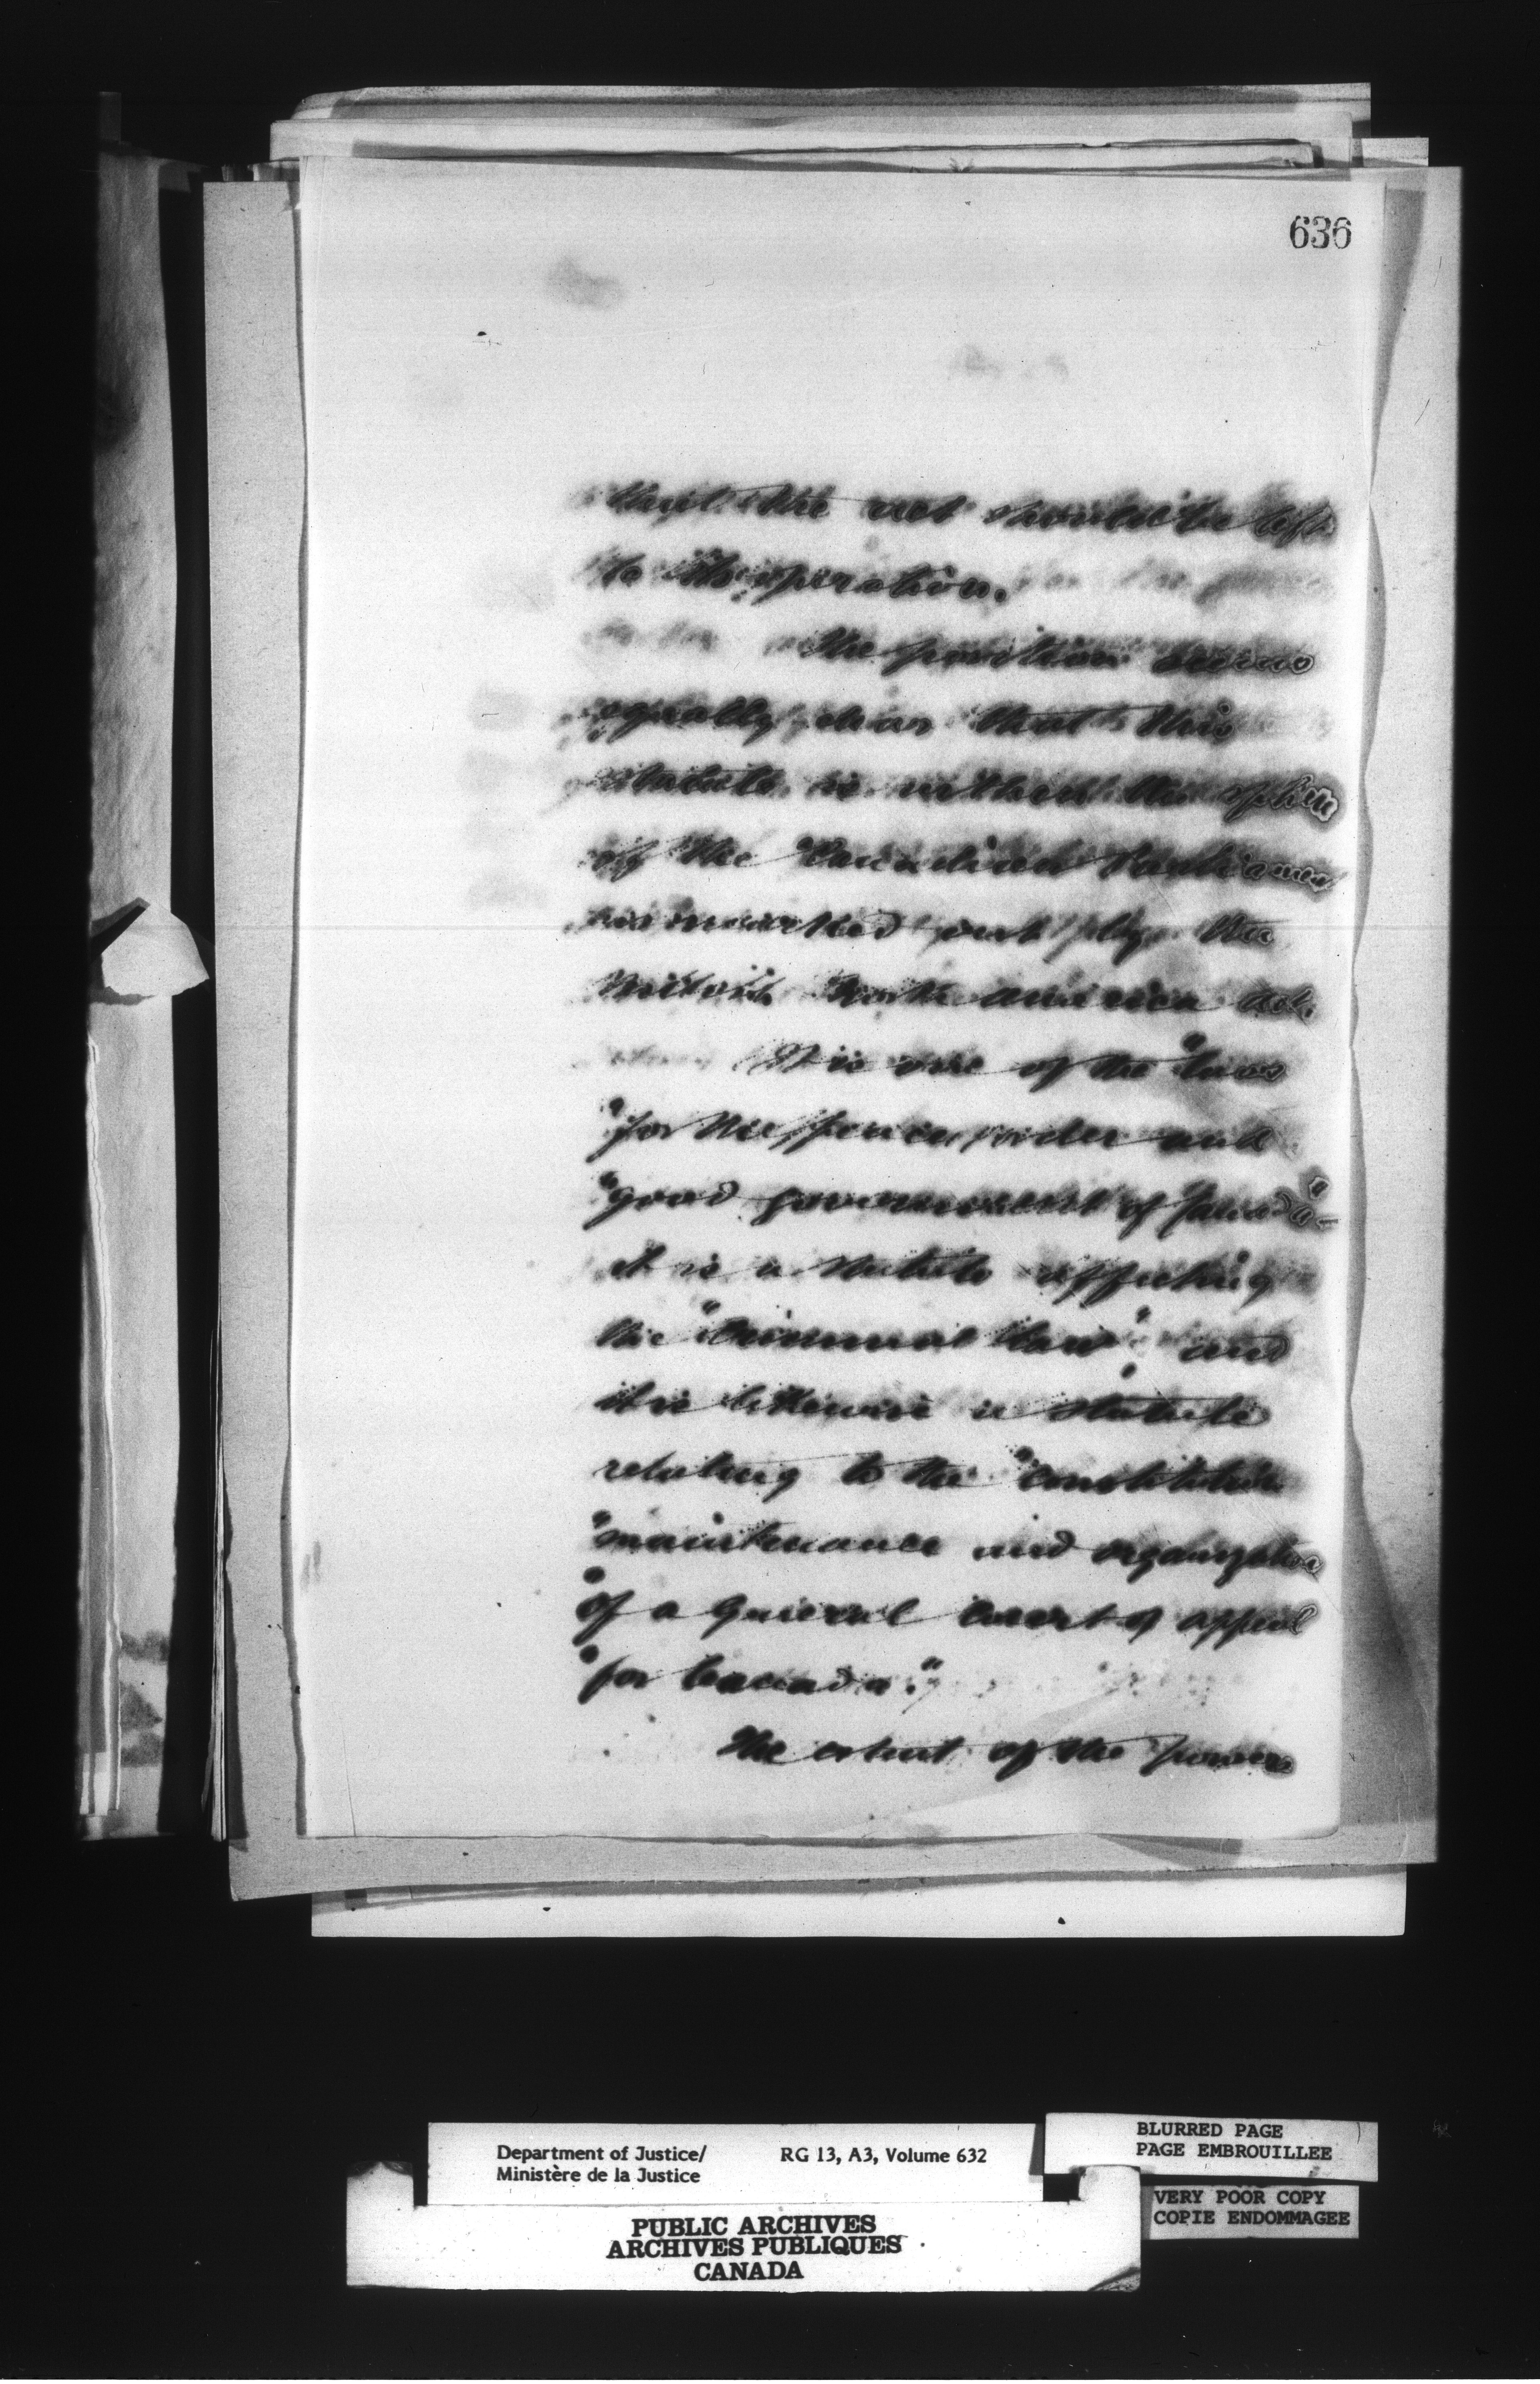 636
that the act should be left
to its operation.
The position seems
equally clear that this
statute is within the sphere
of the Canadian Parliament
as marked out by the
British North America Act.
It is one of the "laws
"for the peace, order and
"good government of Canada"
it is a statute affecting
the "Criminal law", and
it is likewise a statute
relating to the "constitution
"maintenance and organization
"of a general court of appeal
"for Canada."
The extent of the powers
Department of Justice/ RG 13, A3, Volume 632
Ministère de la Justice
BLURRED PAGE
PAGE EMBROUILLEE
VERY POOR COPY
COPIE ENDOMMAGEE
PUBLIC ARCHIVES
ARCHIVES PUBLIQUES
CANADA